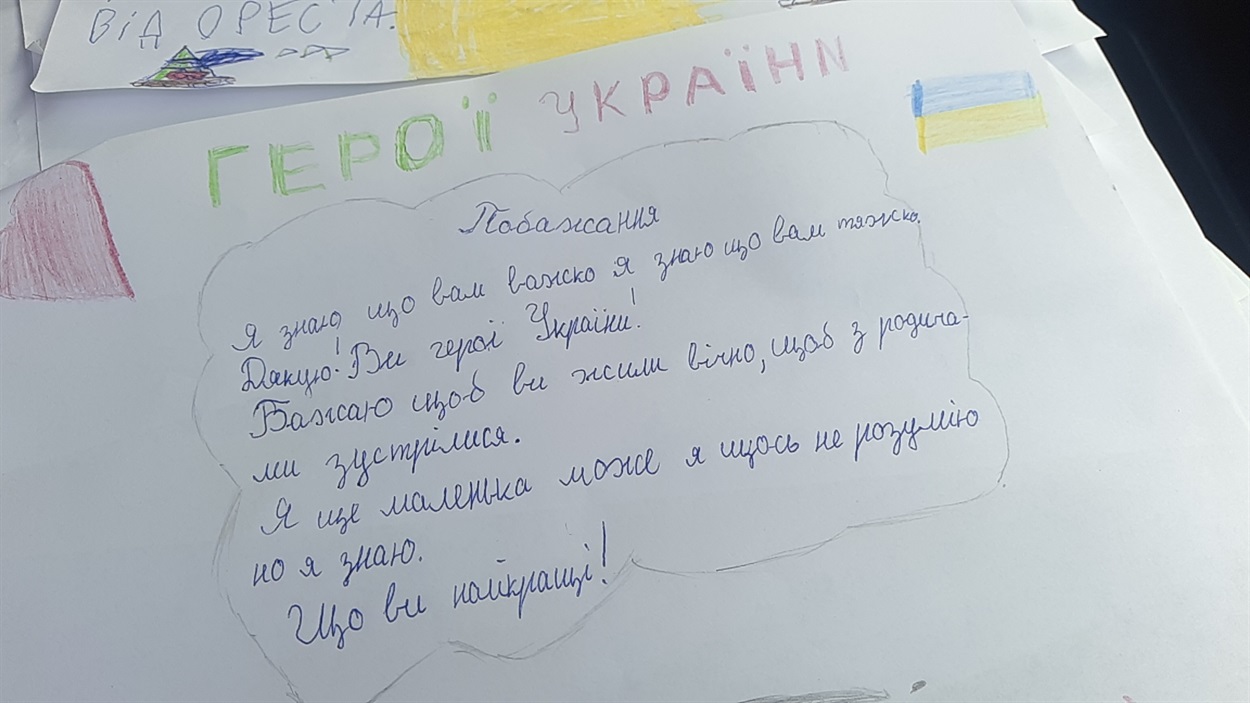 ВІД ОРЕСТА.
ГЕРОЇ УКРАЇНИ
Побажання
Я знаю що вам важко я знаю що вам тяжко.
Дякую! Ви герої України!
Бажаю щоб ви жили вічно, щоб з родича-
ми зустрілися.
Я ще маленька може я щось не розумію
но я знаю.
Що ви найкращі!